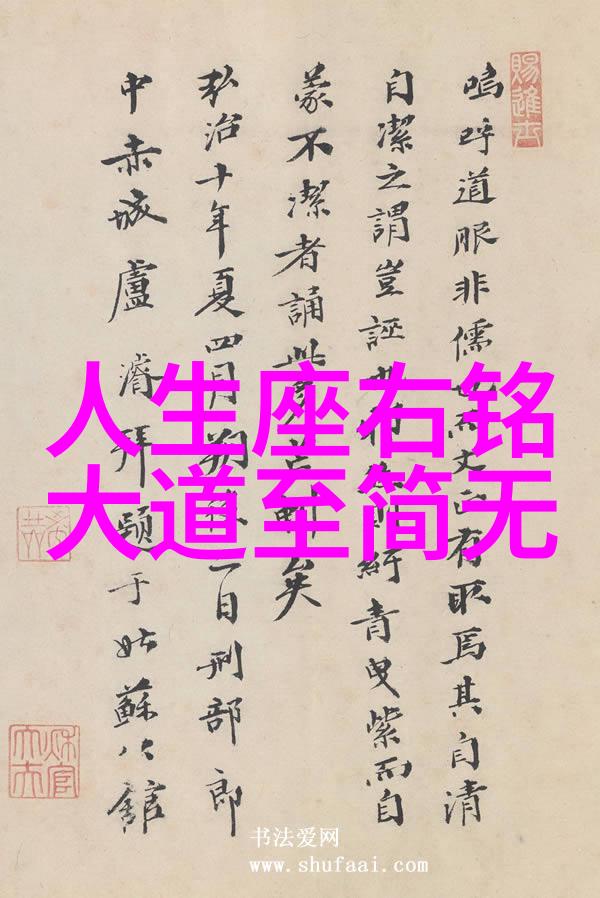 嗚呼道眼非儒
文
有取焉其自清
自潔之謂豈誣
紆青曳紫而自
蒙不潔者誦此
矣
弘治十年夏四月朔
一日刑部郎
中赤城盧濬拜題于姑蘇公館
人生座右铭
大道至简无
书法爱网
www.shufaai.com
賜進士
秋官大夫